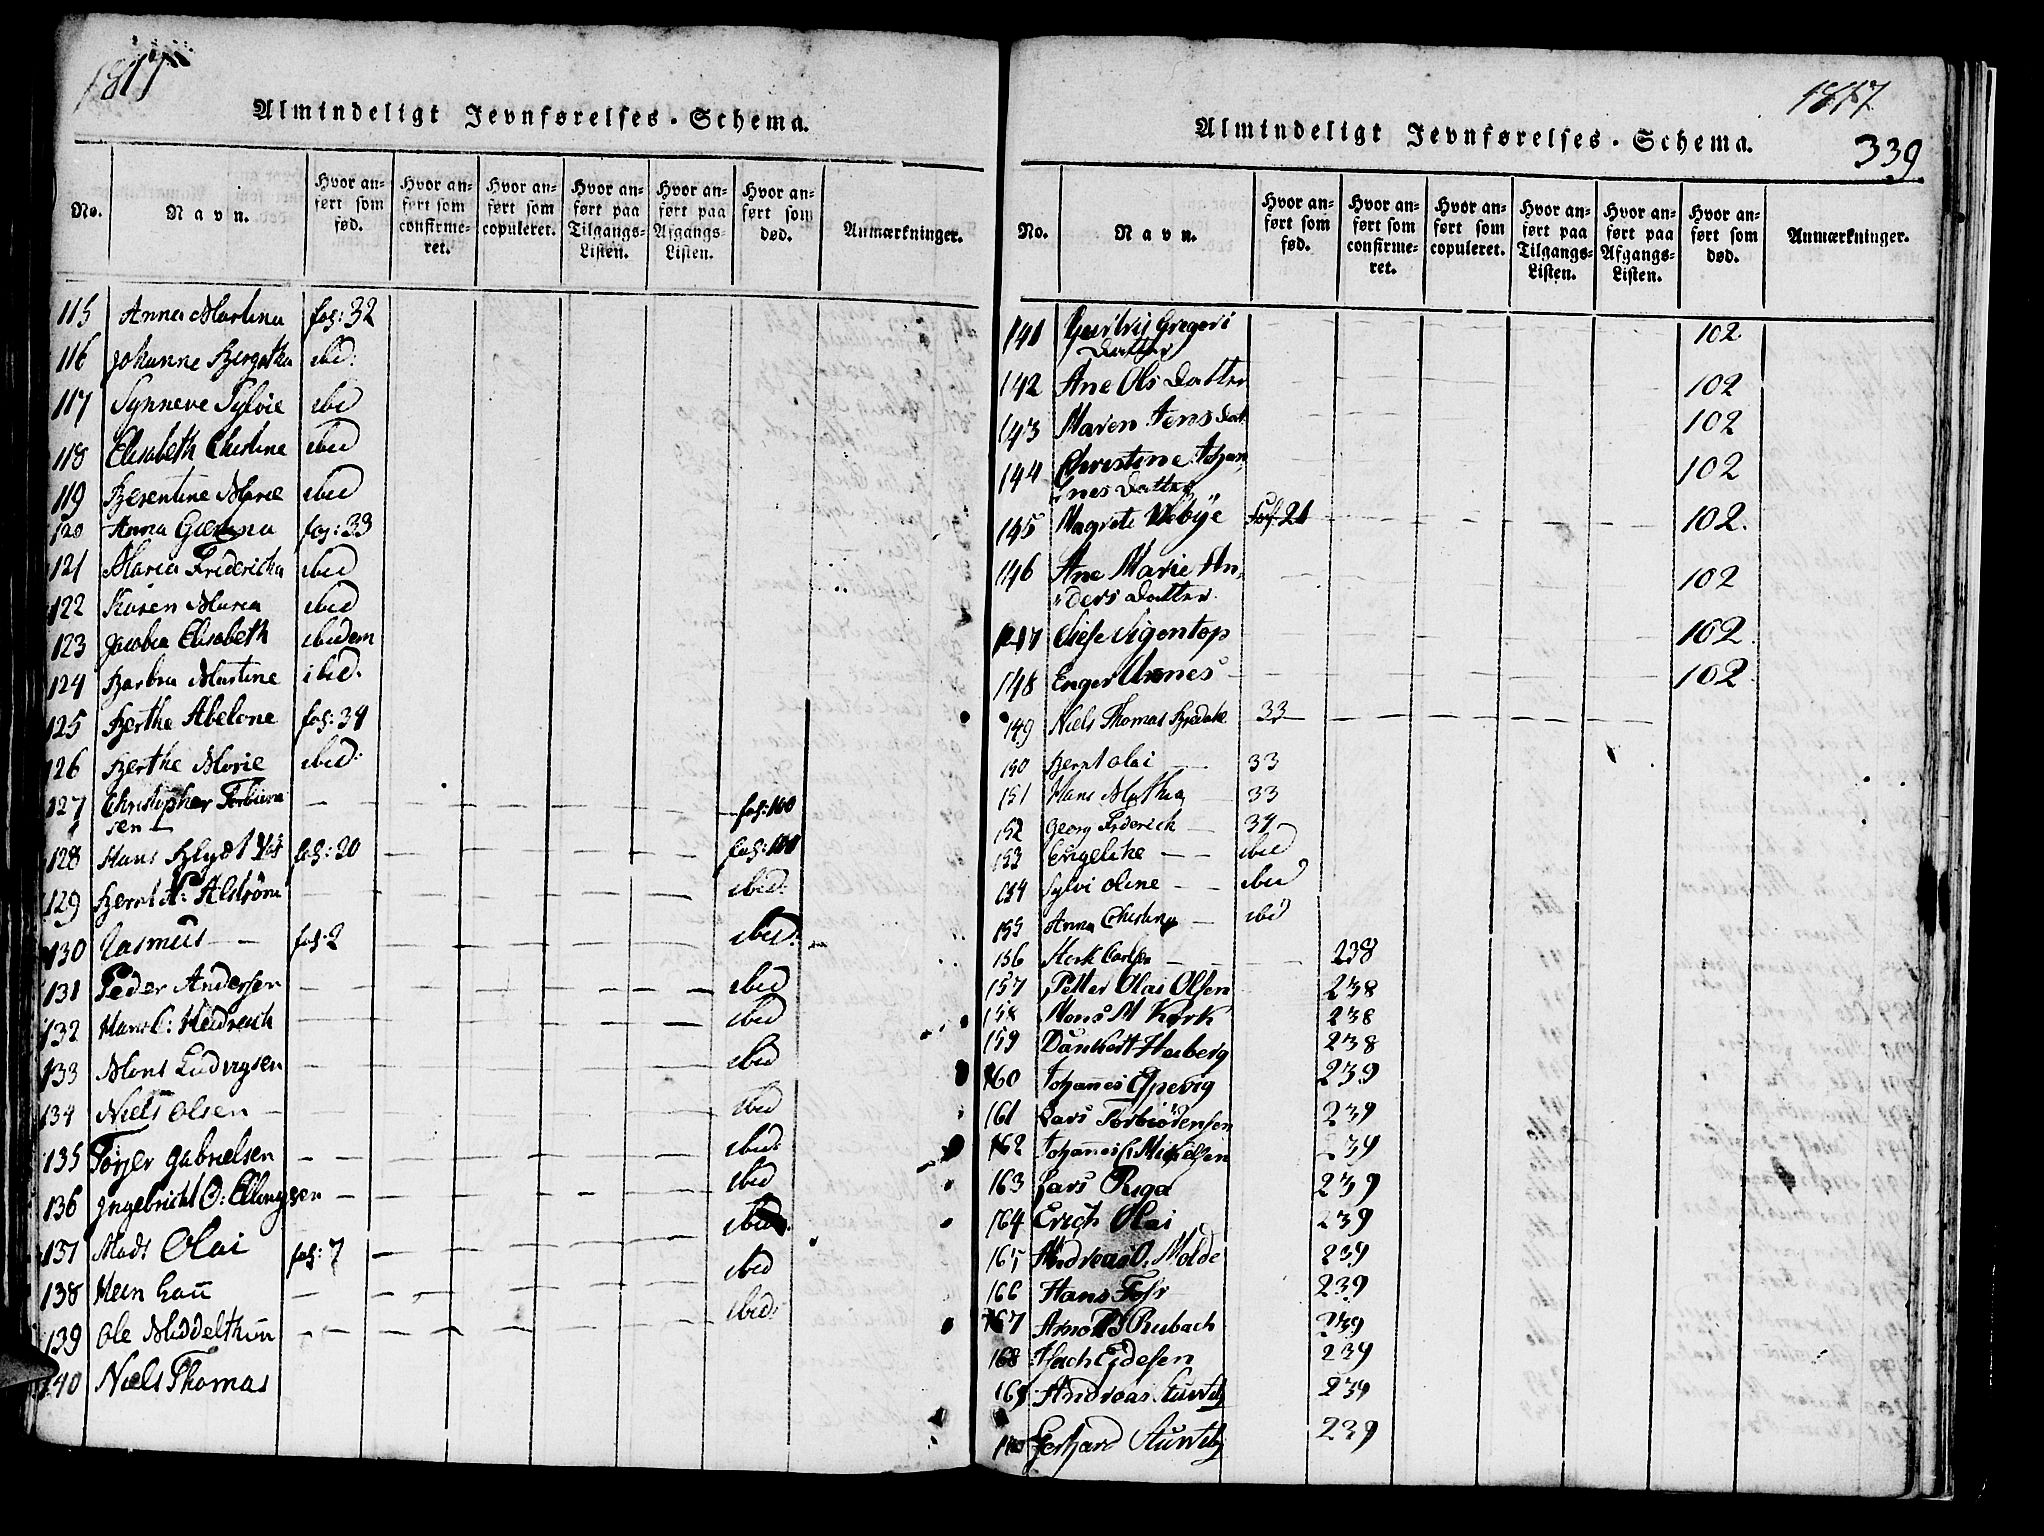 1817
Almindeligt Jevnførelses-Schema.
No.
Navn.
Hvor anført som fød.
Hvor anført som confirmeret.
Hvor anført som copuleret.
Hvor anført paa Tilgangs-Listen.
Hvor anført paa Afgangs-Listen.
Hvor anført som død.
Anmærkninger.
115 Anna Martina fol: 32
116 Johanne Bergitha ibid:
117 Synneve Sylvie ibid
118 Elisabeth Christine ibid
119 Berentine Marie ibid
120 Anna fol: 33
121 Maria Fredericka ibid
122 Karen Maria ibid
123 Jacobia Elisabeth ibidem
124 Barbra Martine ibid.
125 Berthe Abelone fol: 34
126 Berthe Marie ibid:
127 Christopher Torbiørn
sen fol: 100
128 Hans Blydt fol: 20 fol: 101
129 Bernt A: Alström ibid:
130 Rasmus fol: 2 ibid:
131 Peder Andersen ibid
132 Hans C: Heidreich ibid
133 Mons Ludvigsen ibid
134 Niels Olsen ibid
135 Törjer Gabrielsen ibid:
136 Ingebricht O: Ellingsen ibid
137 Mads Olai fol: 7 ibid.
138 Hein Lau ibid
139 Ole Middelthun ibid:
140 Niels Thomas
1817
339
Almindeligt Jevnførelses-Schema.
No.
Navn.
Hvor anført som fød.
Hvor anført som confirmeret.
Hvor anført som copuleret.
Hvor anført paa Tilgangs-Listen.
Hvor anført paa Afgangs-Listen.
Hvor anført som død.
Anmærkninger.
141 Giertrig Gregori
Datter 102
142 Ane Ols Datter 102
143 Maren Jens Dat 102
144 Christine Johan
nes Datter 102
145 Magrete Wibye fol. 21 102.
146 Ane Marie An
ders Datter 102
147 Sigentop 102.
148 Enger Urnes 102.
149 Niels Thomas 33
150 Bernt Olai 33
151 Hans Mathia 33
152 Georg Friderich 34
153 Engelike ibid
154 Sylvi Oline ibid
155 Anna Christina ibid
156 Carlsen 238
157 Petter Olai Olsen 238
158 Mons M Kirk 238
159 Dankert Heiberg 238
160 Johannes Espevig 239
161 Lars Torbiörensen 239
162 Johannes C Mikelsen 239
163 Lars Riga 239
164 Erich Olai 239
165 Andreas O. Molde 239
166 Hans Foss 239
167 Arnold Rubach 239
168 Hach Eidesen 239
169 Andreas 239
170 Gerhard 239